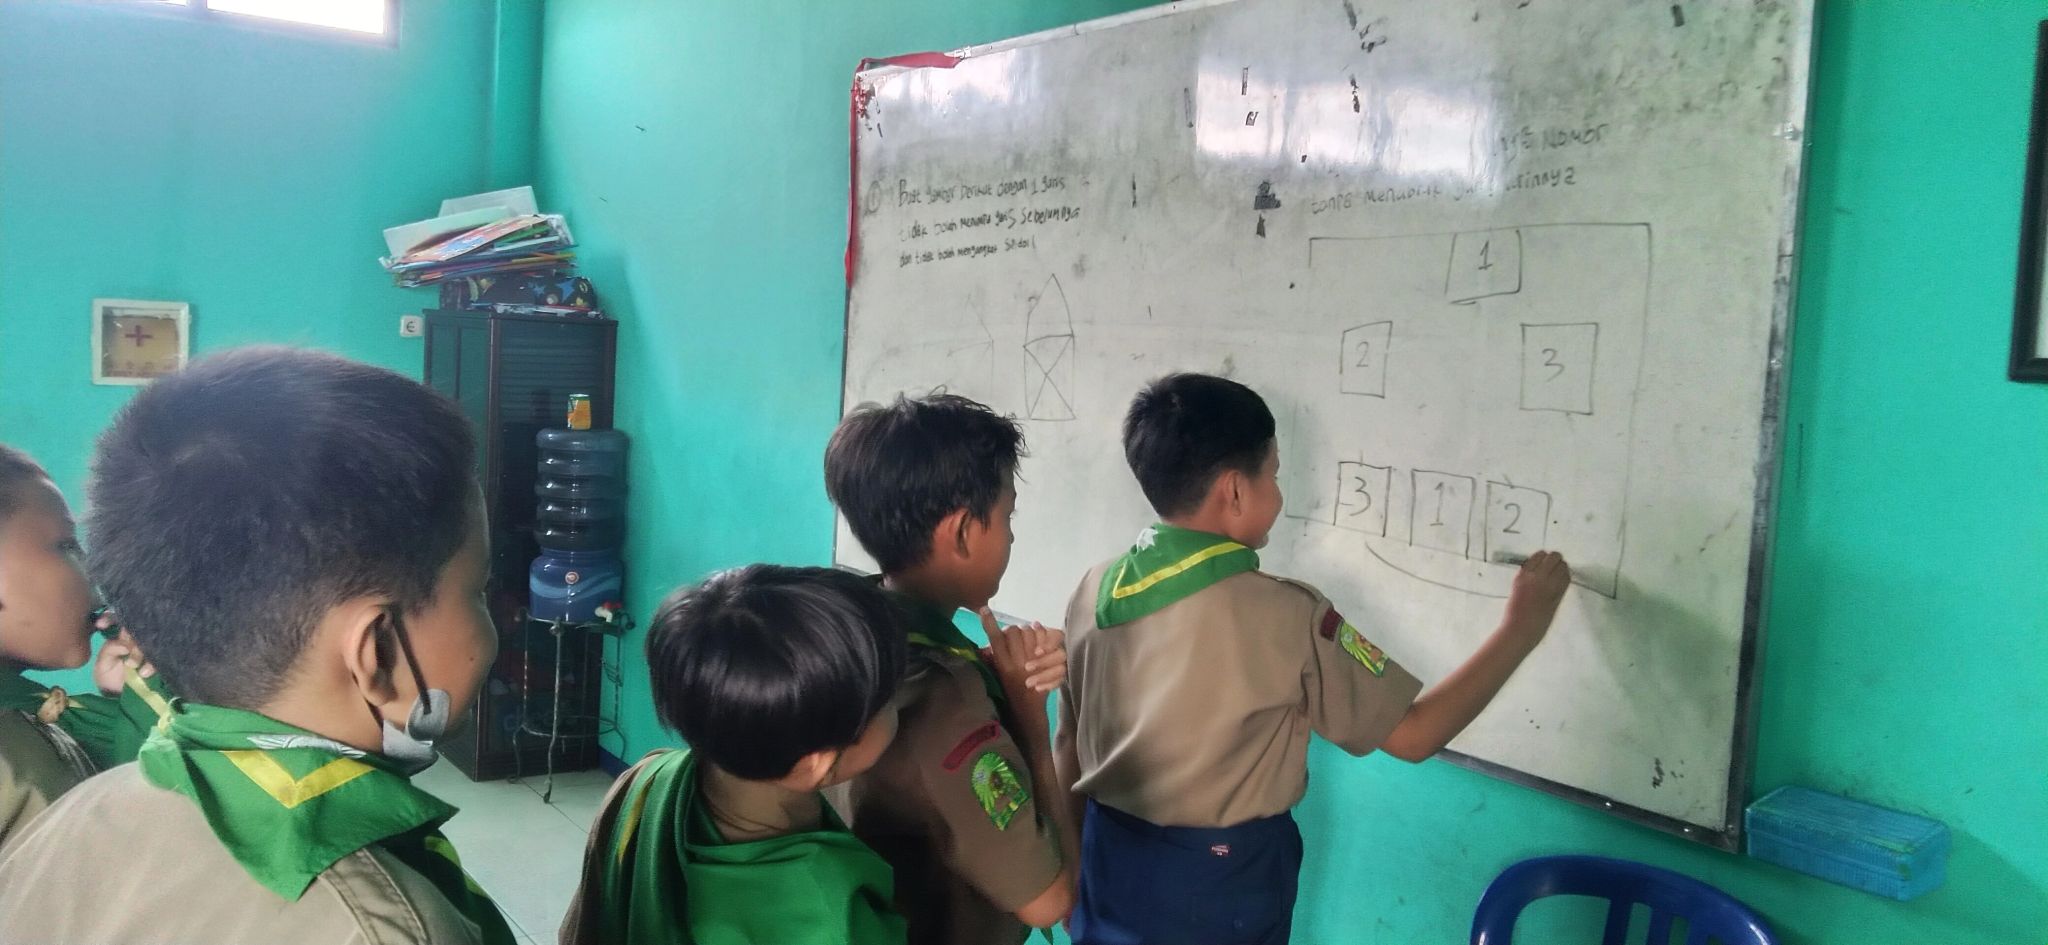 ① Buat gambar berikut dengan 1 garis
tidak boleh menimpa garis sebelumnya
dan tidak boleh mengangkat spidol!
Nomor
tanpa menabrak garis lainnya
1
2 3
3 1 2